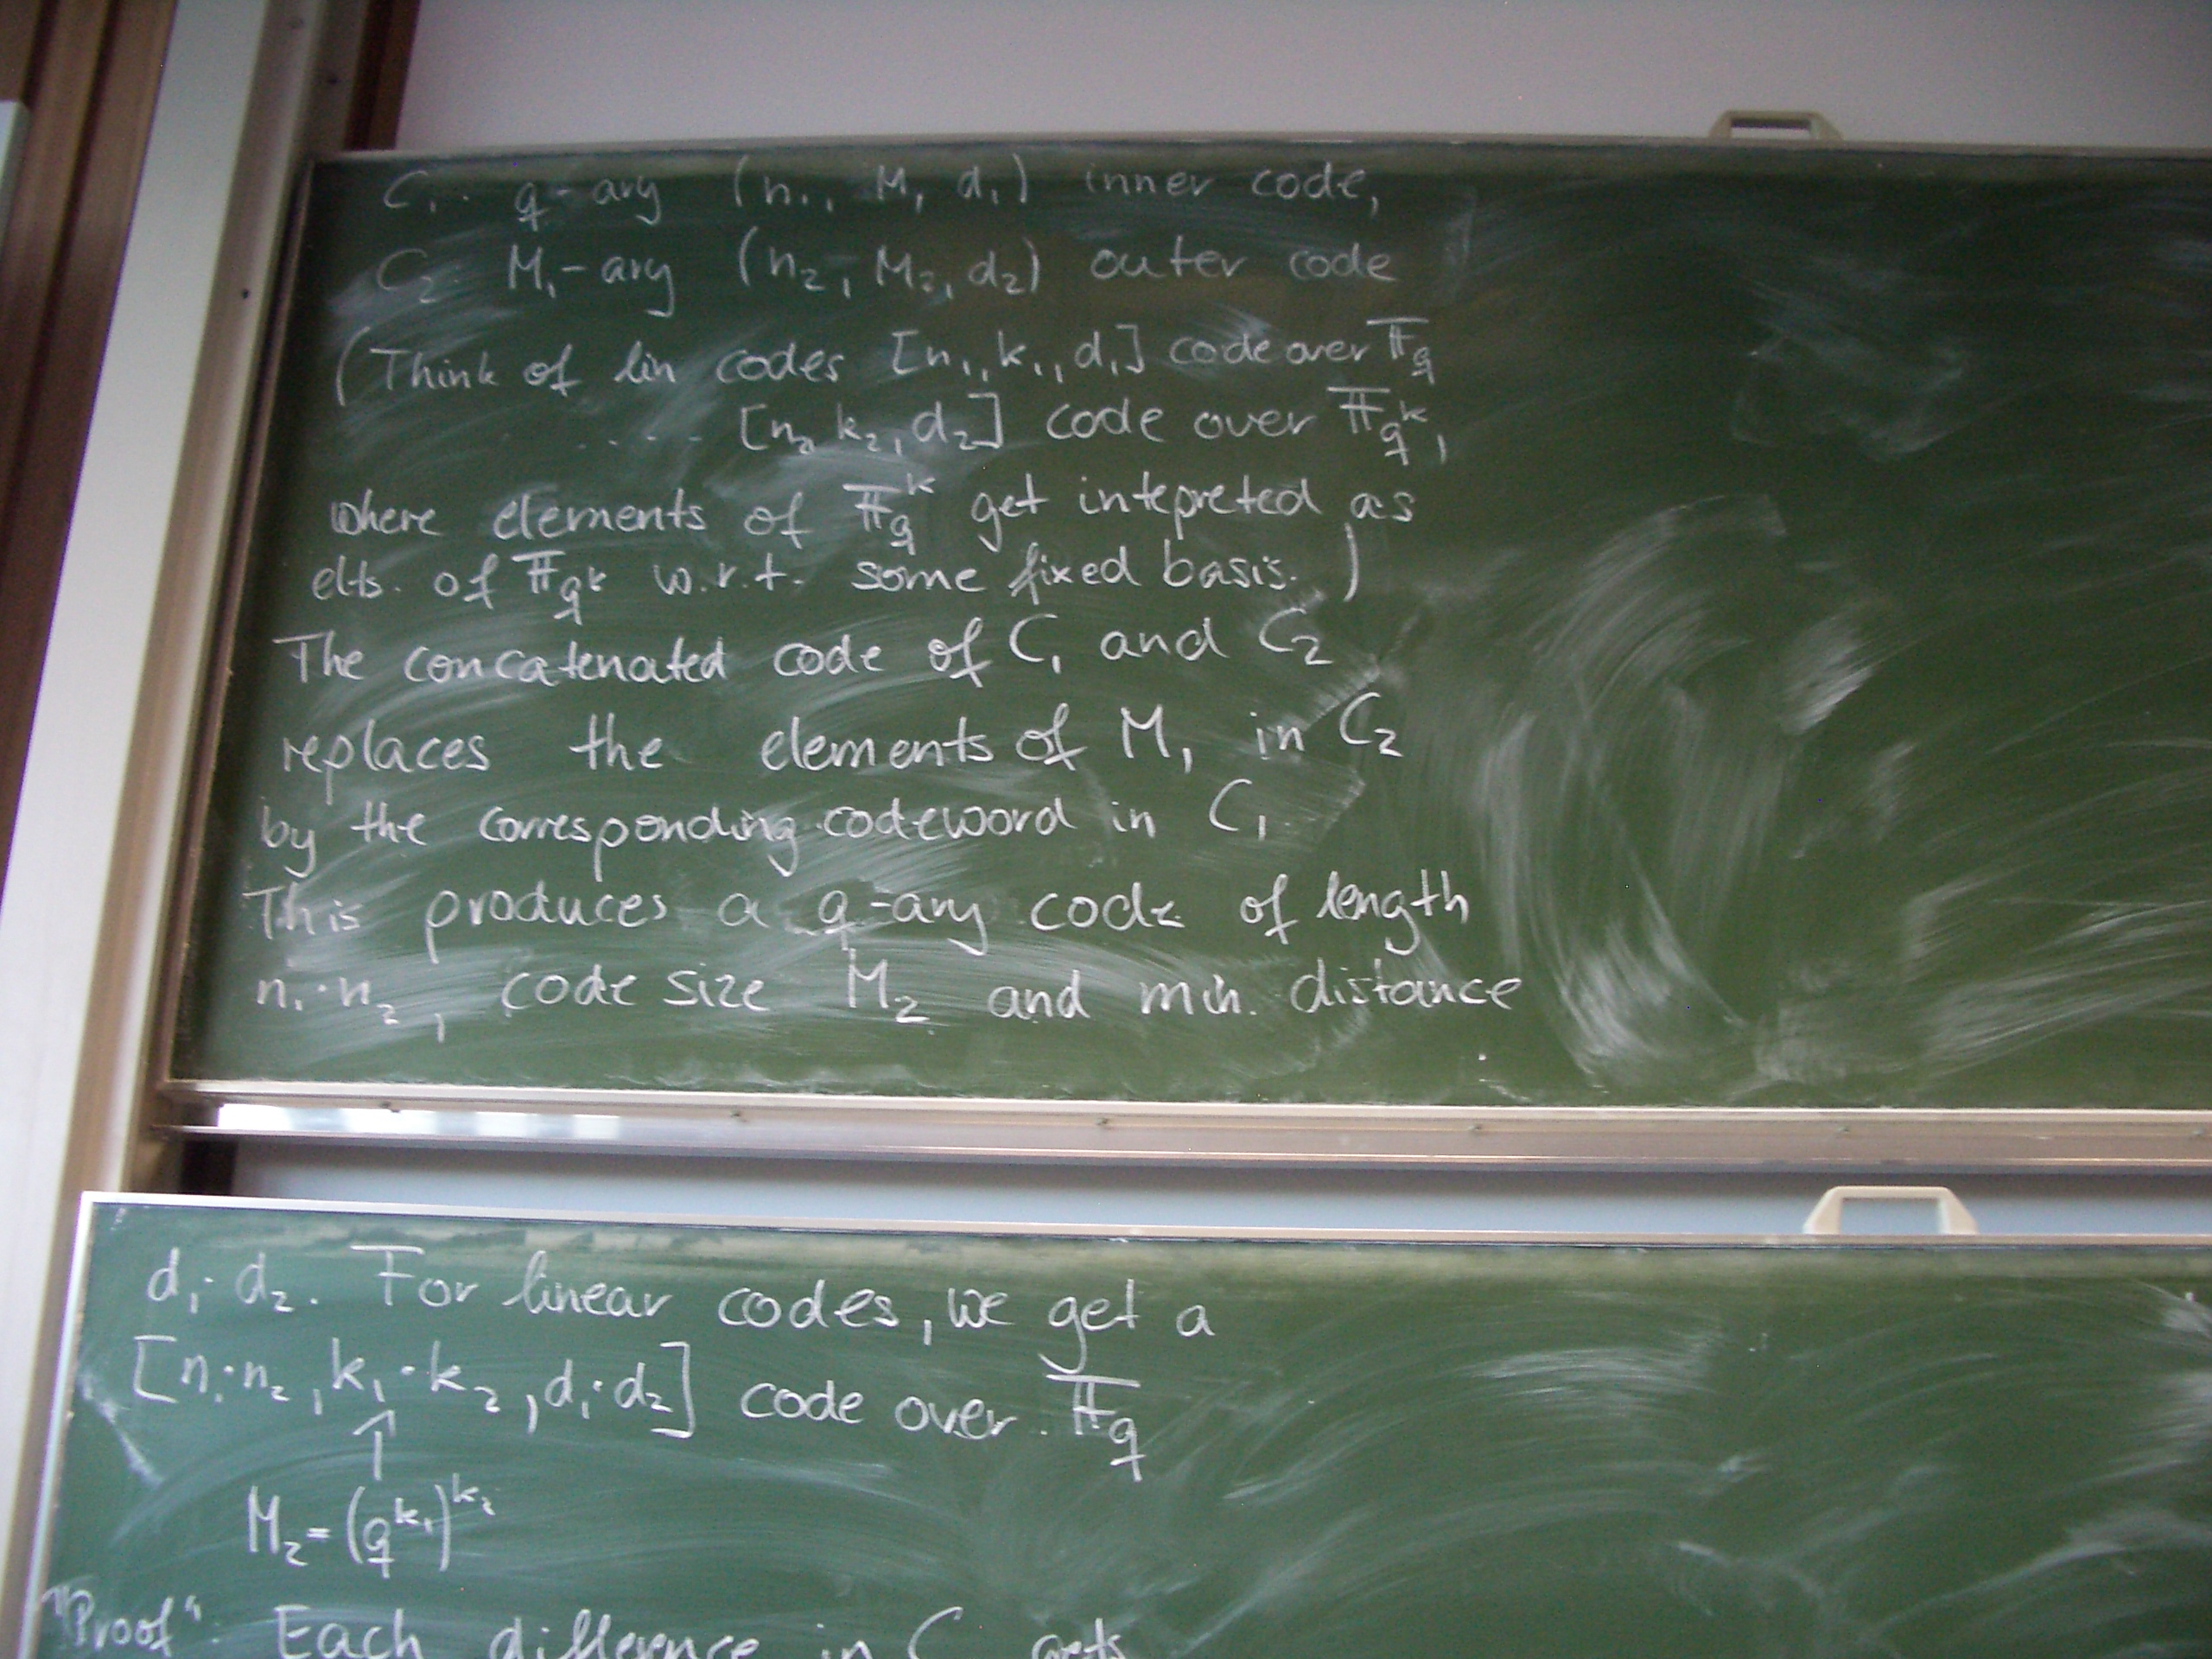 C₁: q-ary (n₁, M₁ d₁) inner code,
C₂: M₁-ary (n₂, M₂, d₂) outer code
(Think of lin codes [n₁, k₁, d₁] code over 𝔽_q
..... [n₂ k₂, d₂] code over 𝔽_{q^k},
where elements of 𝔽_q^k get intepreted as
elts. of 𝔽_{q^k} w.r.t. some fixed basis.)
The concatenated code of C₁ and C₂
replaces the elements of M₁ in C₂
by the corresponding codeword in C₁.
This produces a q-ary code of length
n₁·n₂, code size M₂ and min. distance
d₁·d₂. For linear codes, we get a
[n₁·n₂, k₁·k₂, d₁·d₂] code over 𝔽_q
↑
M₂ = (q^{k₁})^{k₂}
"Proof": Each difference in C gets